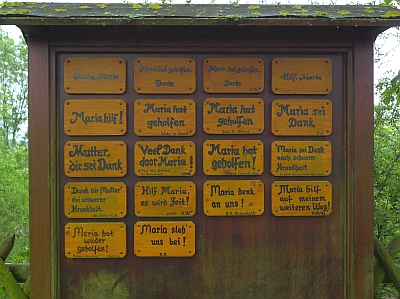 Danke Maria
Maria hat geholfen.
Danke
Maria hat geholfen.
Danke
Hilf Maria
Maria hilf!
Maria hat
geholfen
Maria hat
geholfen
Maria sei
Dank
Mutter,
dir sei Dank
Veel Dank
door Maria!
Maria hat
geholfen!
Maria sei Dank
nach schwerer
Krankheit
Dank dir Mutter
bei schwerer
Krankheit
Hilf Maria,
es wird Zeit!
Maria denk
an uns!
Maria hilf
auf meinem
weiteren Weg!
Maria hat
wieder
geholfen!
Maria steh'
uns bei!